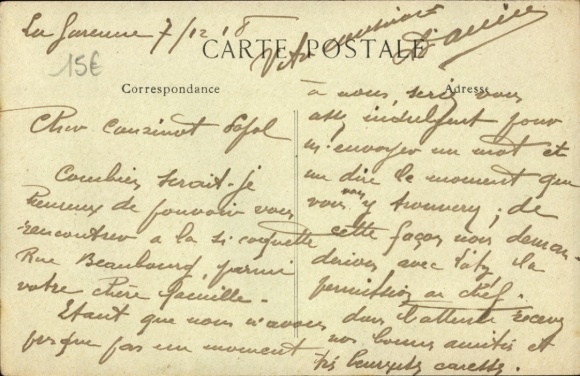 La Garenne 7/12 18
15€
CARTE POSTALE
Correspondance
Adresse
Cher Cousinot
Combien serait-je
heureux de pouvoir vous
rencontrer a la si coquette
Rue Beaubourg, parmi
votre chère famille.
Etant que nous n'avons
presque pas un moment
à nous, seriez vous
assez indulgent pour
m'envoyer un mot et
me dire le moment que
vous vous y trouverez ; de
cette façon nous deman-
derions avec la
permission au chef.
dans l'attente recevez
nos bonnes amitiés et
caresses.